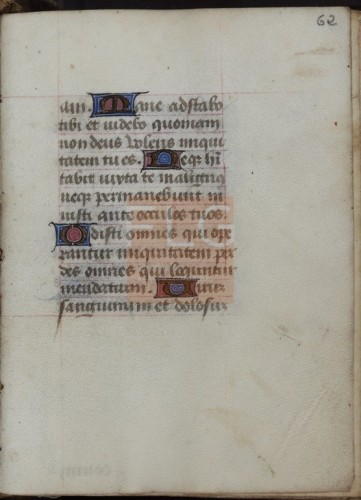 62
am. Mane adstabo
tibi et videbo quoniam
non deus volens iniqui
tatem tu es. Neqz hi
tabit iuxta te malignus
neqz permanebunt in
iusti ante occulos tuos.
Odisti omnes qui ope
rantur iniquitatem per
des omnes qui loquuntur
mendatium. Virum
sanguinum et dolosum